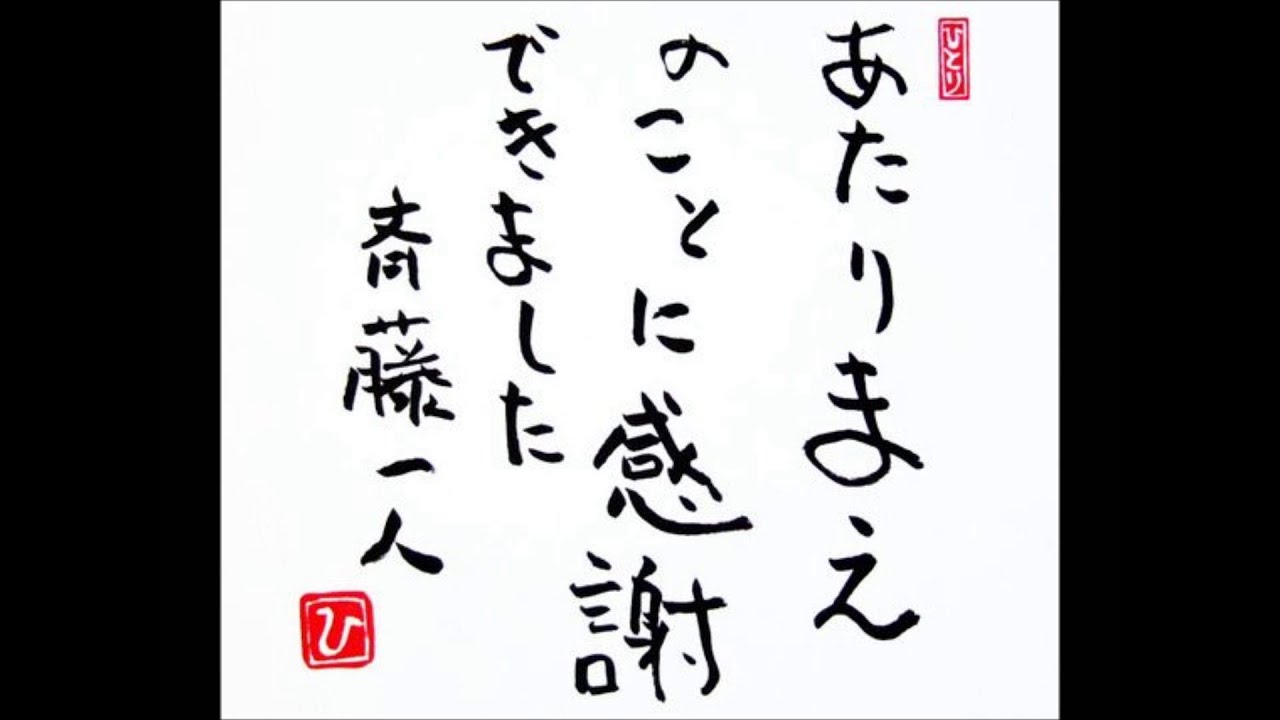 ひとり
あたりまえ
のことに感謝
できました
斎藤一人
ひ